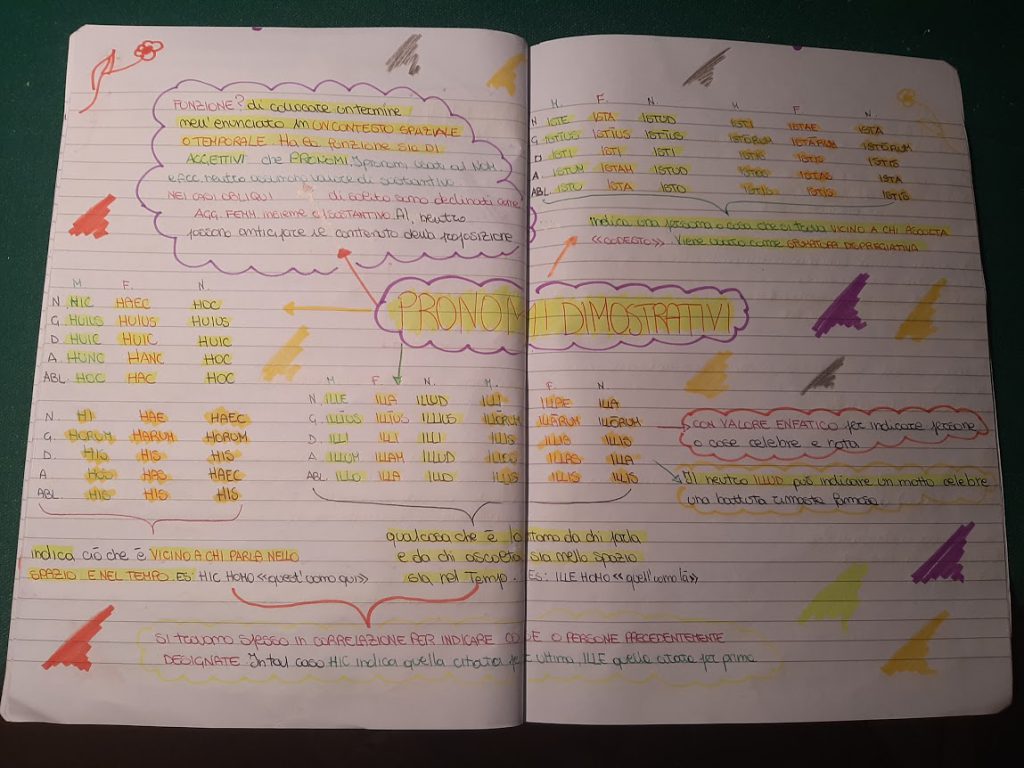 FUNZIONE? di collocare un termine
nell'enunciato in UN CONTESTO SPAZIALE
O TEMPORALE. Ha la funzione sia DI
AGGETTIVI che PRONOMI. I pronomi usati al NOM
e acc neutro assumono valore di sostantivo
NEI CASI OBLIQUI di solito sono declinati come
AGG. FEMM. insieme a 1 SOSTANTIVO. Al neutro
possono anticipare il contenuto della proposizione
PRONOMI DIMOSTRATIVI
M F. N.
N HIC HAEC HOC
G. HUIUS HUIUS HUIUS
D. HUIC HUIC HUIC
A. HUNC HANC HOC
ABL. HOC HAC HOC
N. HI HAE HAEC
G. HORUM HARUM HORUM
D. HIS HIS HIS
A HOS HAS HAEC
ABL. HIS HIS HIS
indica ciò che è VICINO A CHI PARLA NELLO
SPAZIO E NEL TEMPO ES HIC HOMO «quest'uomo qui»
M. F. N. M. F. N.
N ISTE ISTA ISTUD ISTI ISTAE ISTA
G ISTĪUS ISTĪUS ISTĪUS ISTŌRUM ISTĀRUM ISTŌRUM
D ISTI ISTI ISTI ISTIS ISTIS ISTIS
A ISTUM ISTAM ISTUD ISTOS ISTAS ISTA
ABL. ISTO ISTA ISTO ISTIS ISTIS ISTIS
indica una persona o cosa che si trova VICINO A CHI ASCOLTA
«CODESTO». Viene usato come SFUMATURA DISPREGIATIVA
M F. N. M. F. N.
N. ILLE ILLA ILLUD ILLI ILLAE ILLA
G. ILLĪUS ILLĪUS ILLIUS ILLŌRUM ILLĀRUM ILLŌRUM
D. ILLI ILLI ILLI ILLIS ILLIS ILLIS
A. ILLUM ILLAM ILLUD ILLOS ILLAS ILLA
ABL ILLO ILLA ILLO ILLIS ILLIS ILLIS
CON VALORE ENFATICO per indicare persone
o cose celebre e nota
Il neutro ILLUD può indicare un motto celebre
una battuta rimasta famosa.
qualcosa che è lontano da chi parla
e da chi ascolta sia nello spazio
sia nel Tempo. ES: ILLE HOMO «quell'uomo là»
Si trovano spesso in CORRELAZIONE PER INDICARE COSE O PERSONE PRECEDENTEMENTE
DESIGNATE In tal caso HIC indica quella citata per ultima, ILLE quella citata per prima